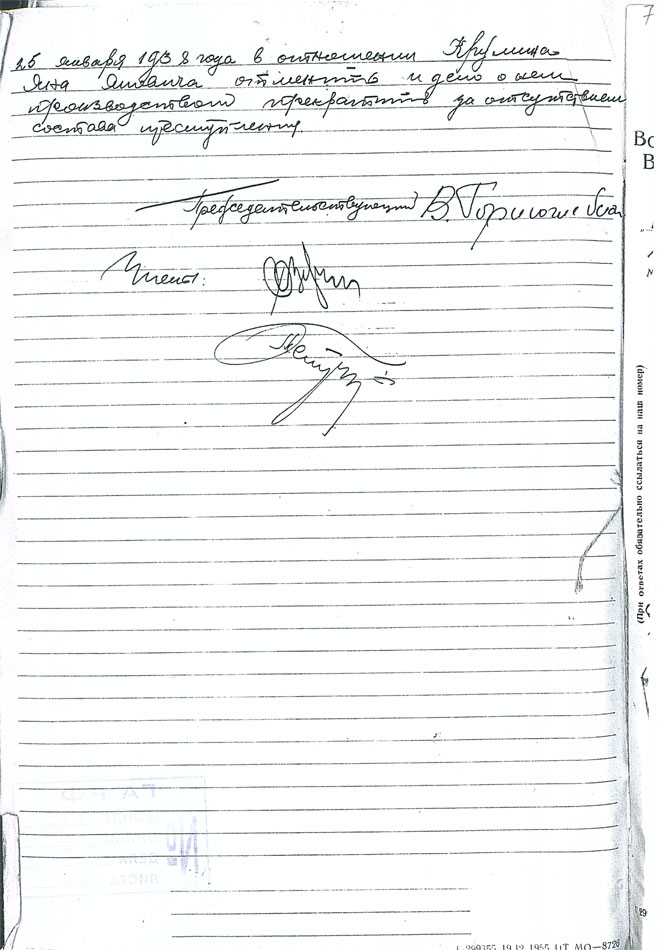 25 января 1938 года в отношении Крумина
Яна Яновича отменить и дело о нем
производством прекратить за отсутствием
состава преступления.
Председательствующий
Члены:
7
Во
В
(При ответах обязательно ссылаться на наш номер)
ГАРФ
№
ДЕЛА
ЛИСТА
29